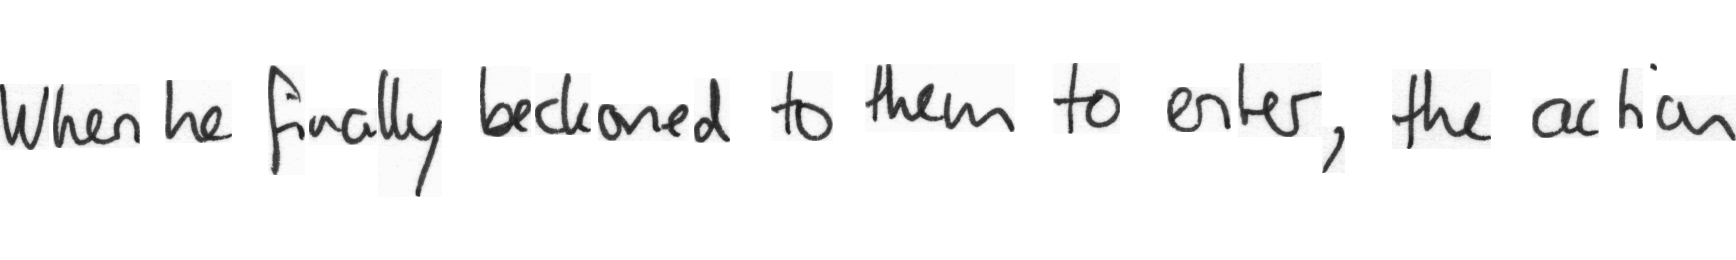 When he finally beckoned to them to enter, the action